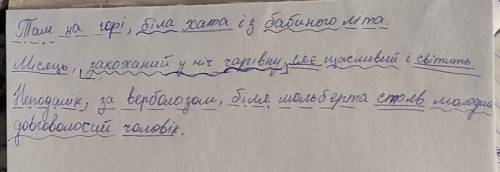 Там на горі, біла хата із бабиного літа.
Місяць, закоханий у ніч чарівну, сяє щасливий і світить.
Неподалік, за верболозом, біля мольберта стояв молодий
довговолосий чоловік.